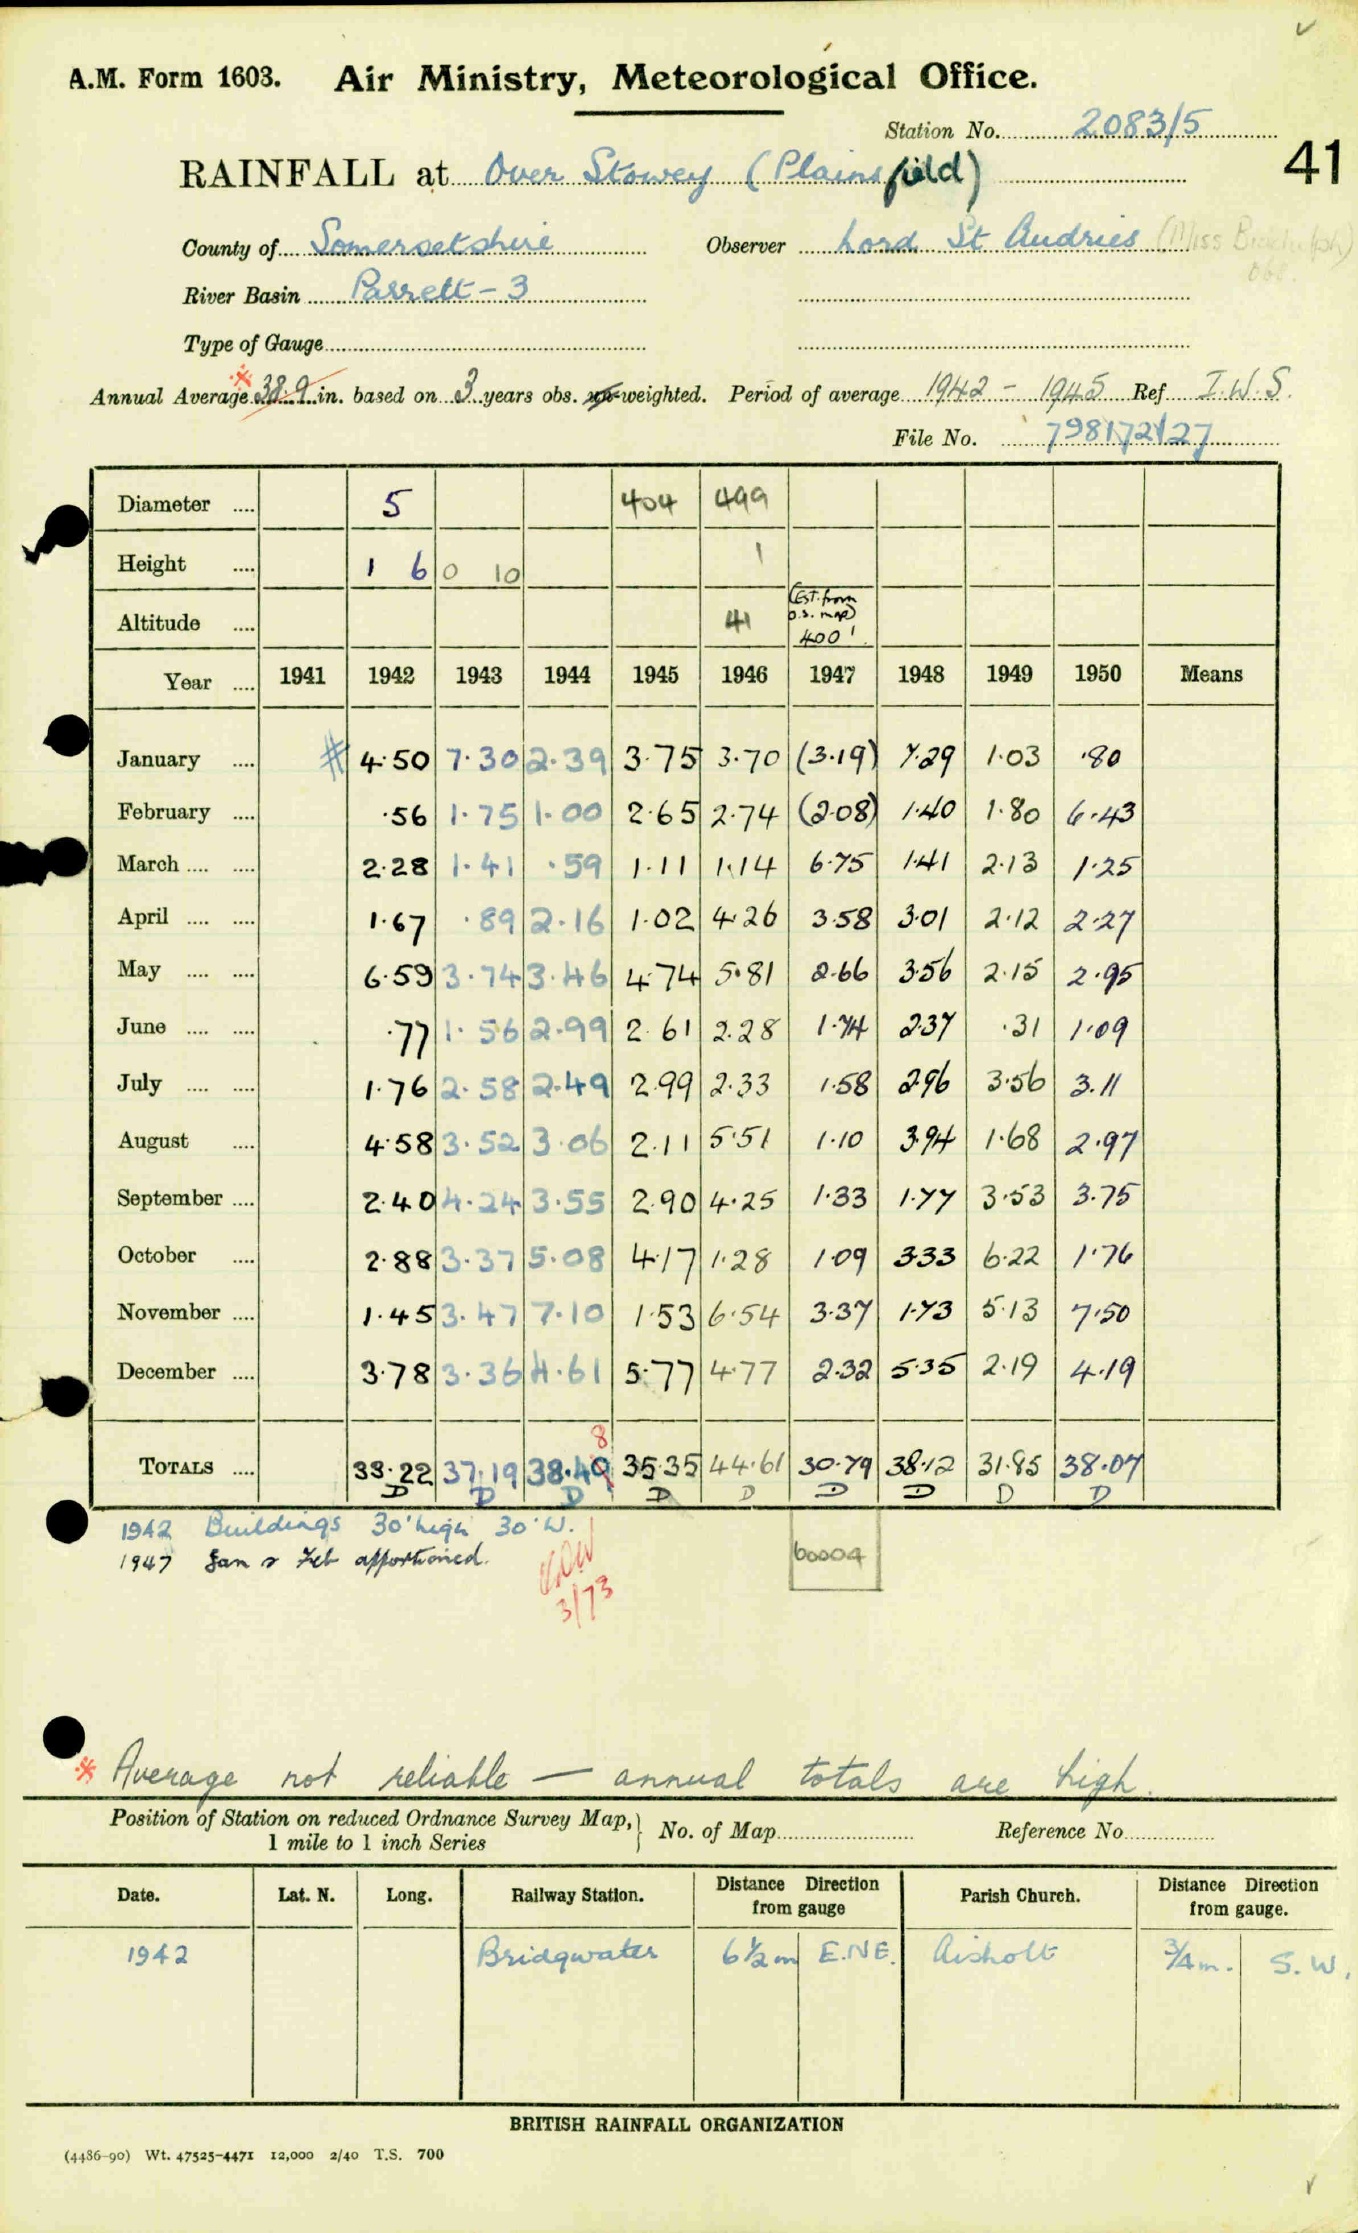 A.M. Form 1603. Air Ministry, Meteorological Office.
Station No. 2083/5
41
RAINFALL at Over Stowey (Plainsfield)
County of Somersetshire Observer Lord St Audries (Miss
River Basin Parrett - 3
Type of Gauge
Annual Average * 38.9 in. based on 3 years obs. un-weighted. Period of average 1942 - 1945 Ref I.W.S.
File No. 798172/27
Diameter .... 5 404 499
Height .... 1 6 0 10 1
Altitude .... 41 (Est. from O.S. map) 400'
Year .... 1941 1942 1943 1944 1945 1946 1947 1948 1949 1950 Means
January .... # 4.50 7.30 2.39 3.75 3.70 (3.19) 7.29 1.03 .80
February .... .56 1.75 1.00 2.65 2.74 (2.08) 1.40 1.80 6.43
March .... .... 2.28 1.41 .59 1.11 1.14 6.75 1.41 2.13 1.25
April .... .... 1.67 .89 2.16 1.02 4.26 3.58 3.01 2.12 2.27
May .... .... 6.59 3.74 3.46 4.74 5.81 2.66 3.56 2.15 2.95
June .... .... .77 1.56 2.99 2.61 2.28 1.74 2.37 .31 1.09
July .... .... 1.76 2.58 2.49 2.99 2.33 1.58 2.96 3.56 3.11
August .... 4.58 3.52 3.06 2.11 5.51 1.10 3.94 1.68 2.97
September .... 2.40 4.24 3.55 2.90 4.25 1.33 1.77 3.53 3.75
October .... 2.88 3.37 5.08 4.17 1.28 1.09 3.33 6.22 1.76
November .... 1.45 3.47 7.10 1.53 6.54 3.37 1.73 5.13 7.50
December .... 3.78 3.36 4.61 5.77 4.77 2.32 5.35 2.19 4.19
8
TOTALS .... 33.22 37.19 38.49 35.35 44.61 30.79 38.12 31.85 38.07
D D D D D D D D D
1942 Buildings 30' high 30' W.
1947 Jan & Feb apportioned.
60004
3/73
* Average not reliable — annual totals are high.
Position of Station on reduced Ordnance Survey Map, 1 mile to 1 inch Series } No. of Map Reference No
Date. Lat. N. Long. Railway Station. Distance Direction from gauge Parish Church. Distance Direction from gauge.
1942 Bridgwater 6½m E.NE. Aisholt ¾m. S.W.
BRITISH RAINFALL ORGANIZATION
(4486-90) Wt. 47525-4471 12,000 2/40 T.S. 700